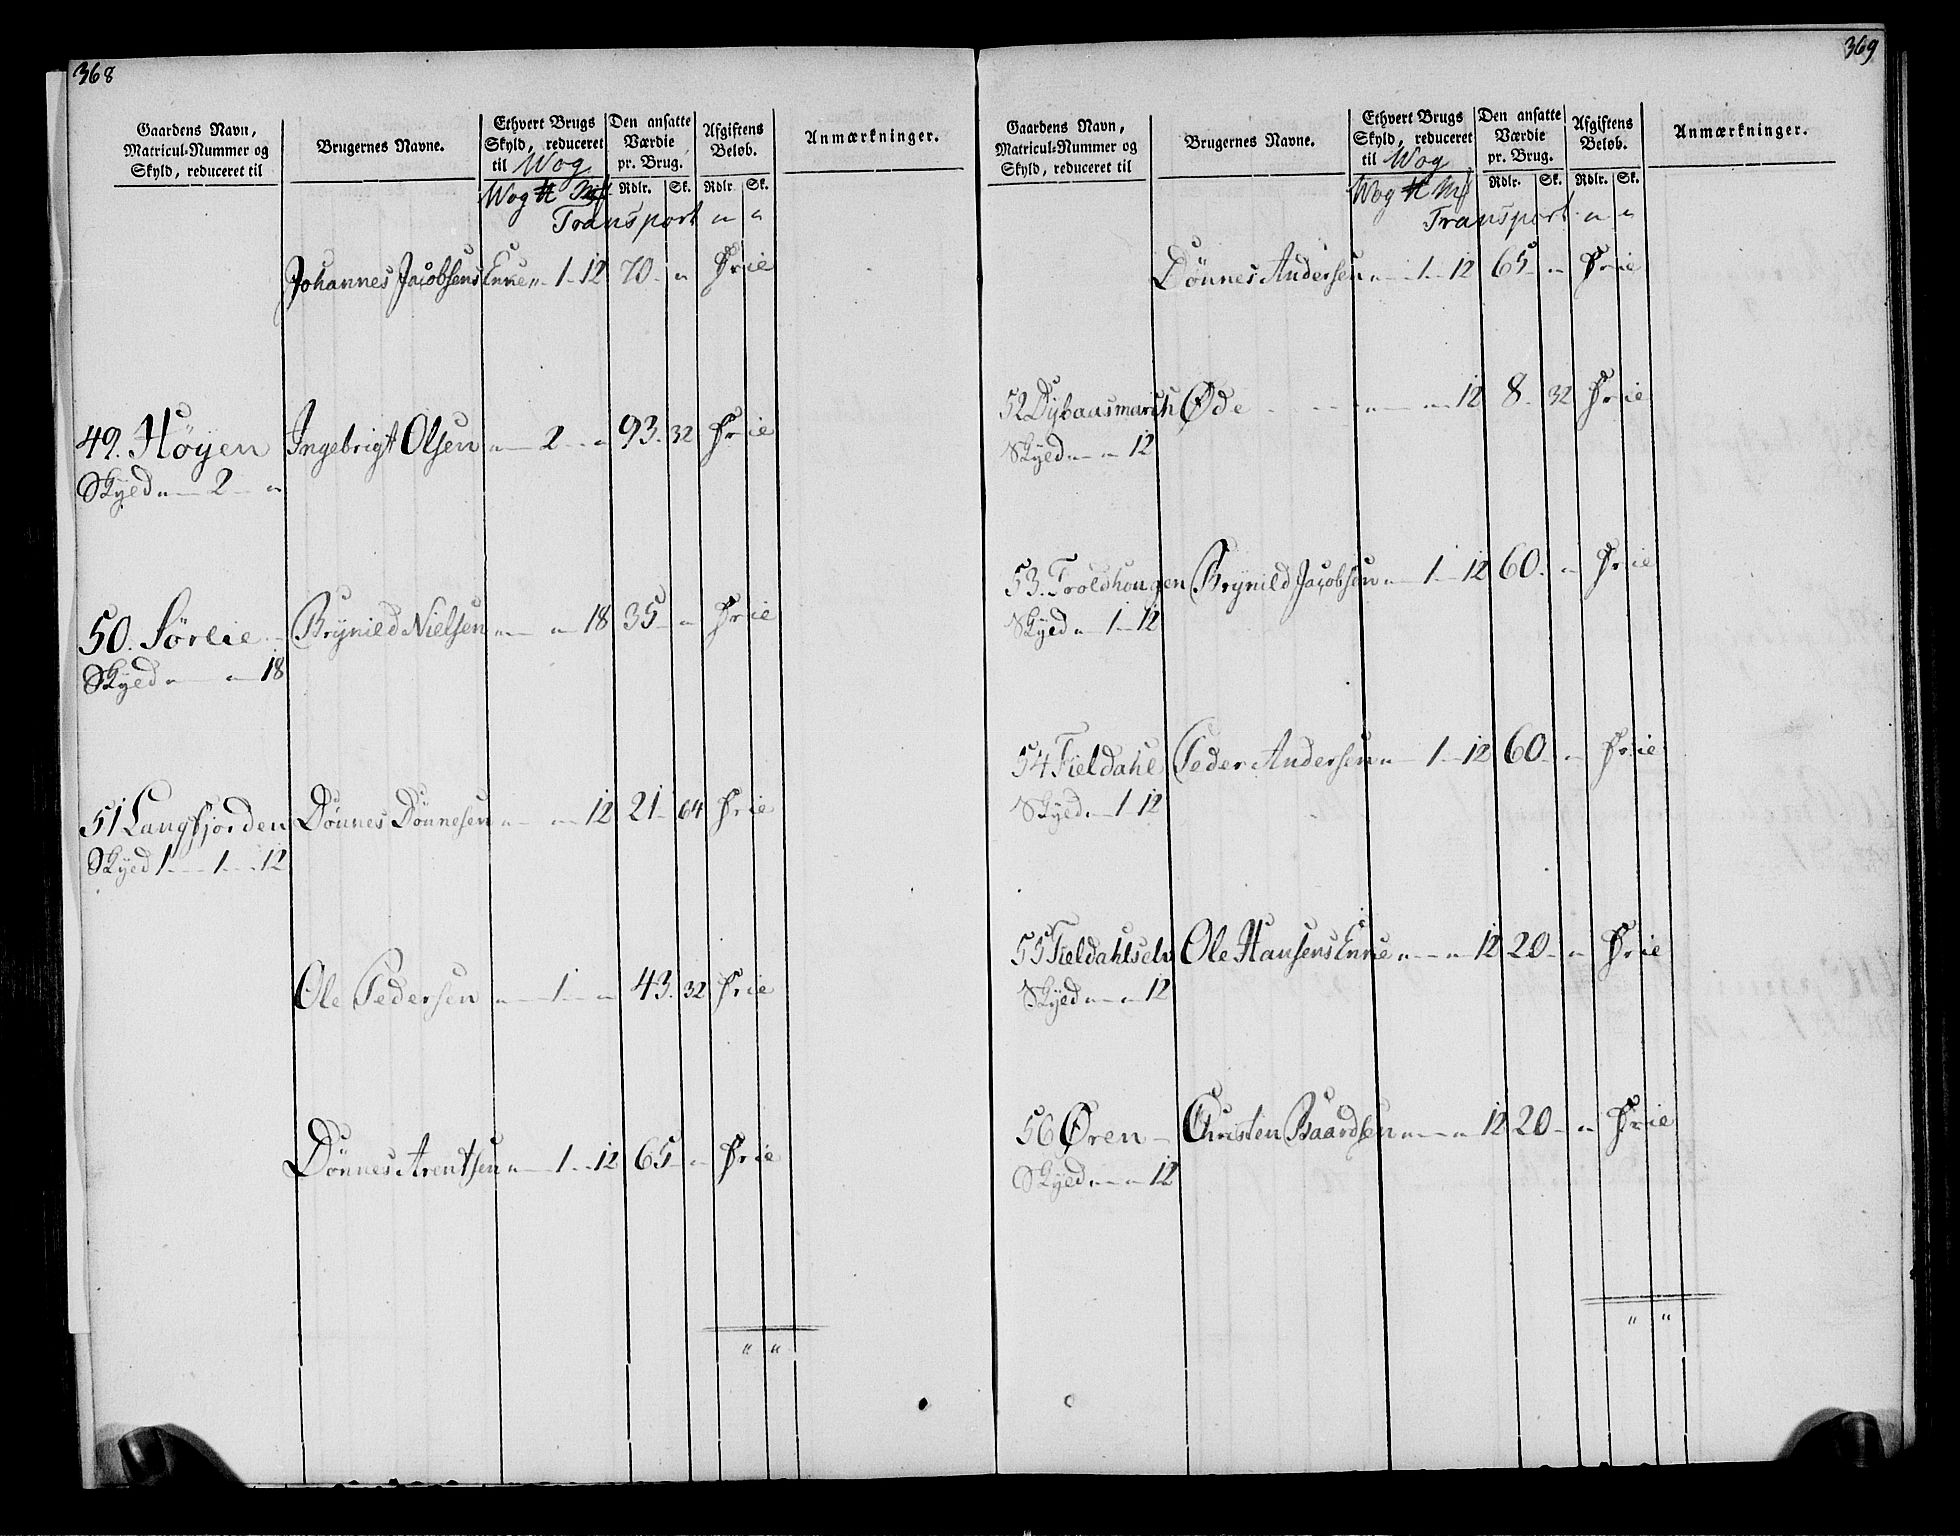 368
Gaardens Navn, Matricul-Nummer og Skyld, reduceret til
Brugernes Navne.
Ethvert Brugs Skyld, reduceret til Wog
Den ansatte Værdie pr. Brug.
Afgiftens Beløb.
Anmærkninger.
Wog ℔ Mk Rdlr. Sk. Rdlr. Sk.
Transport " "
Johannes Jacobsens Enke " 1 12 70 " Frie
49. Høyen Ingebrigt Olsen " 2 " 93 32 Frie
Skyld " 2 "
50. Sørlie Brynild Nielsen " " 18 35 " Frie
Skyld " " 18
51 Langfjorden Dönnes Dönnesen " " 12 21 64 Frie
Skyld 1 1 12
Ole Pedersen " 1 " 43 32 Frie
Dönnes Arentsen " 1 12 65 " Frie
" "
369
Gaardens Navn, Matricul-Nummer og Skyld, reduceret til
Brugernes Navne.
Ethvert Brugs Skyld, reduceret til Wog
Den ansatte Værdie pr. Brug.
Afgiftens Beløb.
Anmærkninger.
Wog ℔ Mk Rdlr. Sk. Rdlr. Sk.
Transport " "
Dönnes Andersen " 1 12 65 " Frie
52 Dybausmarsh Øde " " 12 8 32 Frie
Skyld " " 12
53. Troldhougen Brynild Jacobsen " 1 12 60 " Frie
Skyld " 1 12
54 Fieldahl Peder Andersen " 1 12 60 " Frie
Skyld " 1 12
55 Fieldahlselv Ole Hansens Enke " " 12 20 " Frie
Skyld " " 12
56 Øren Christen Baardsen " " 12 20 " Frie
Skyld " " 12
" "